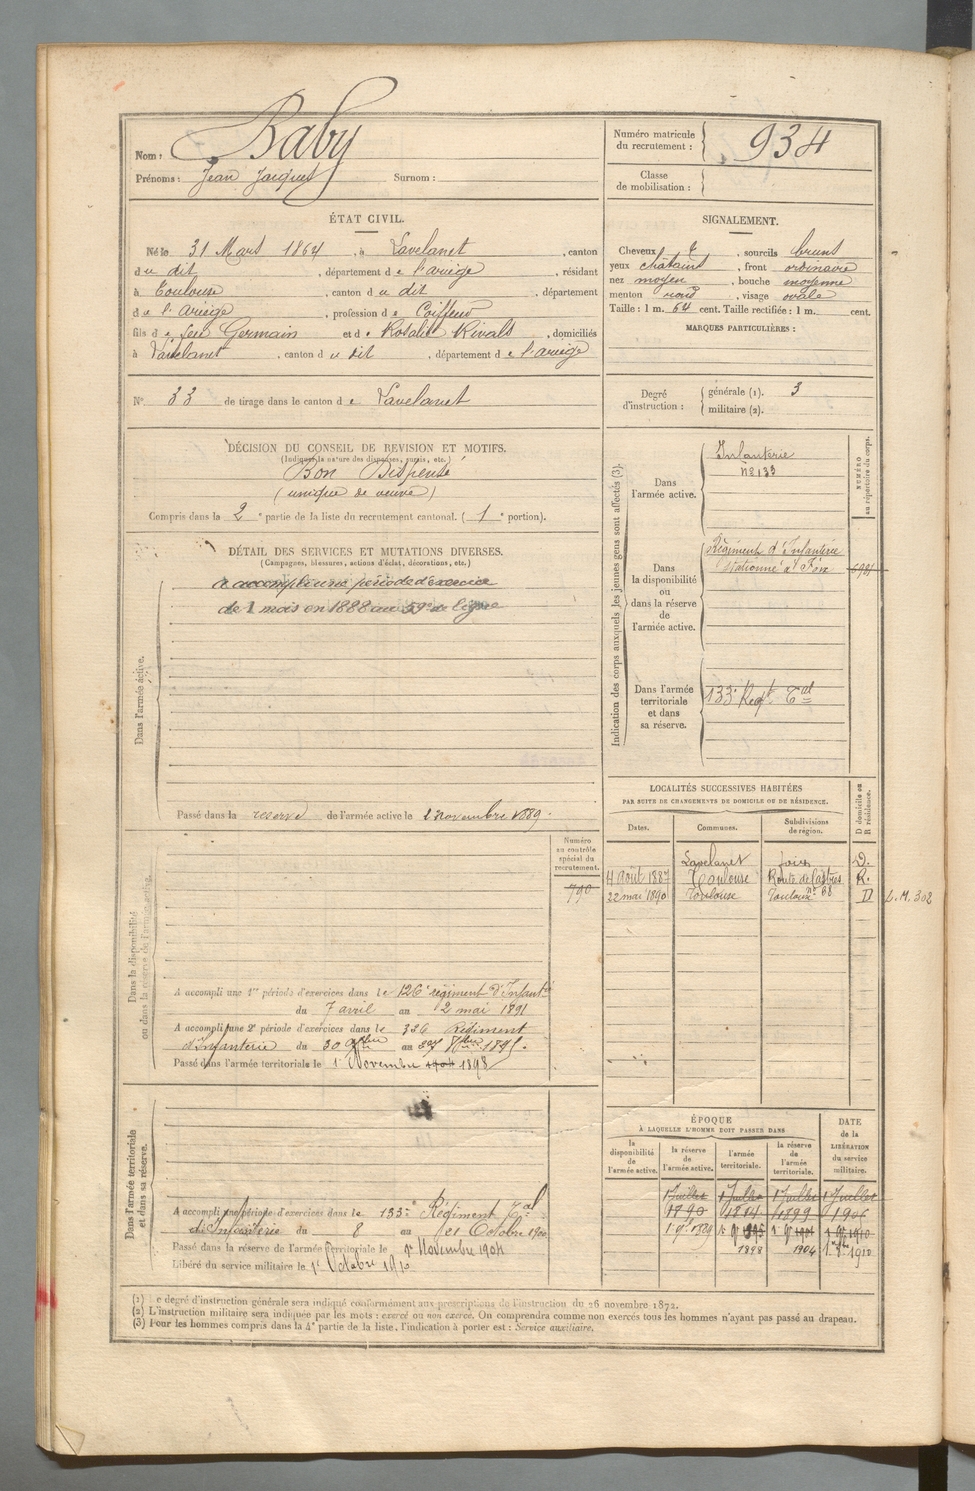 Nom : Baby
Prénoms : Jean Jacques Surnom :
Numéro matricule du recrutement : 934
Classe de mobilisation :
ÉTAT CIVIL.
Né le 31 Mars 1864, à Lavelanet, canton
du dit, département de l'ariège, résidant
à Toulouse, canton du dit, département
de l'ariège, profession de Coiffeur
fils de feu Germain et de Rosalie Rivals, domiciliés
à Lavelanet, canton du dit, département de l'ariège
SIGNALEMENT.
Cheveux et, sourcils bruns
yeux chatains, front ordinaire
nez moyen, bouche moyenne
menton rond, visage ovale
Taille : 1 m. 64 cent. Taille rectifiée : 1 m. cent.
MARQUES PARTICULIÈRES :
N° 33 de tirage dans le canton de Lavelanet
Degré d'instruction : générale (1). 3
militaire (2).
DÉCISION DU CONSEIL DE REVISION ET MOTIFS.
(Indiquer la nature des dispenses, sursis, etc.)
Bon Dispensé
(unique de veuve)
Compris dans la 2e partie de la liste du recrutement cantonal. (1e portion).
DÉTAIL DES SERVICES ET MUTATIONS DIVERSES.
(Campagnes, blessures, actions d'éclat, décorations, etc.)
Dans l'armée active.
A accompli une période d'exercice
de 1 mois en 1888 au 59e de ligne
Passé dans la réserve de l'armée active le 1 novembre 1889.
Indication des corps auxquels les jeunes gens sont affectés (3).
NUMÉRO au répertoire du corps.
Dans l'armée active.
Infanterie
n° 133
Dans la disponibilité ou dans la réserve de l'armée active.
Régiment d'Infanterie
Stationné à Foix
Dans l'armée territoriale et dans sa réserve.
133e Regt Tal
LOCALITÉS SUCCESSIVES HABITÉES
PAR SUITE DE CHANGEMENTS DE DOMICILE OU DE RÉSIDENCE.
Dates. Communes. Subdivisions de région. D domicile ou R résidence.
Lavelanet Foix D.
4 Août 1887 Toulouse Route de Castres n° 38 R.
22 mai 1890 Toulouse Toulouse D L.M. 302
Dans la disponibilité ou dans la réserve de l'armée active.
Numéro au contrôle spécial du recrutement.
790
A accompli une 1re période d'exercices dans le 126e régiment d'Infant
du 7 avril au 2 mai 1891
A accompli une 2e période d'exercices dans le 326 Régiment
d'Infanterie du 30 au 1895.
Passé dans l'armée territoriale le 1er Novembre 1901 1898
Dans l'armée territoriale et dans sa réserve.
A accompli une période d'exercices dans le 133e Régiment Tal
d'Infanterie du 8 au 21 Octobre 1900
Passé dans la réserve de l'armée territoriale le 1er Novembre 1904
Libéré du service militaire le 1er Octobre 1910
ÉPOQUE
À LAQUELLE L'HOMME DOIT PASSER DANS
la disponibilité de l'armée active. la réserve de l'armée active. l'armée territoriale. la réserve de l'armée territoriale. DATE de la LIBÉRATION du service militaire.
1 Juillet 1 Juillet 1 Juillet 1 Juillet
1890 1894 1899 1904
1898 1904
(1) Le degré d'instruction générale sera indiqué conformément aux prescriptions de l'instruction du 26 novembre 1872.
(2) L'instruction militaire sera indiquée par les mots : exercé ou non exercé. On comprendra comme non exercés tous les hommes n'ayant pas passé au drapeau.
(3) Pour les hommes compris dans la 4e partie de la liste, l'indication à porter est : Service auxiliaire.